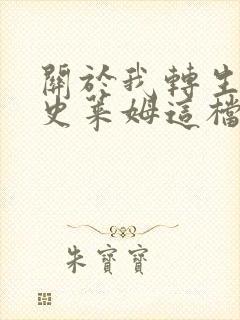 關於我轉生
史萊姆這檔
朱寶寶